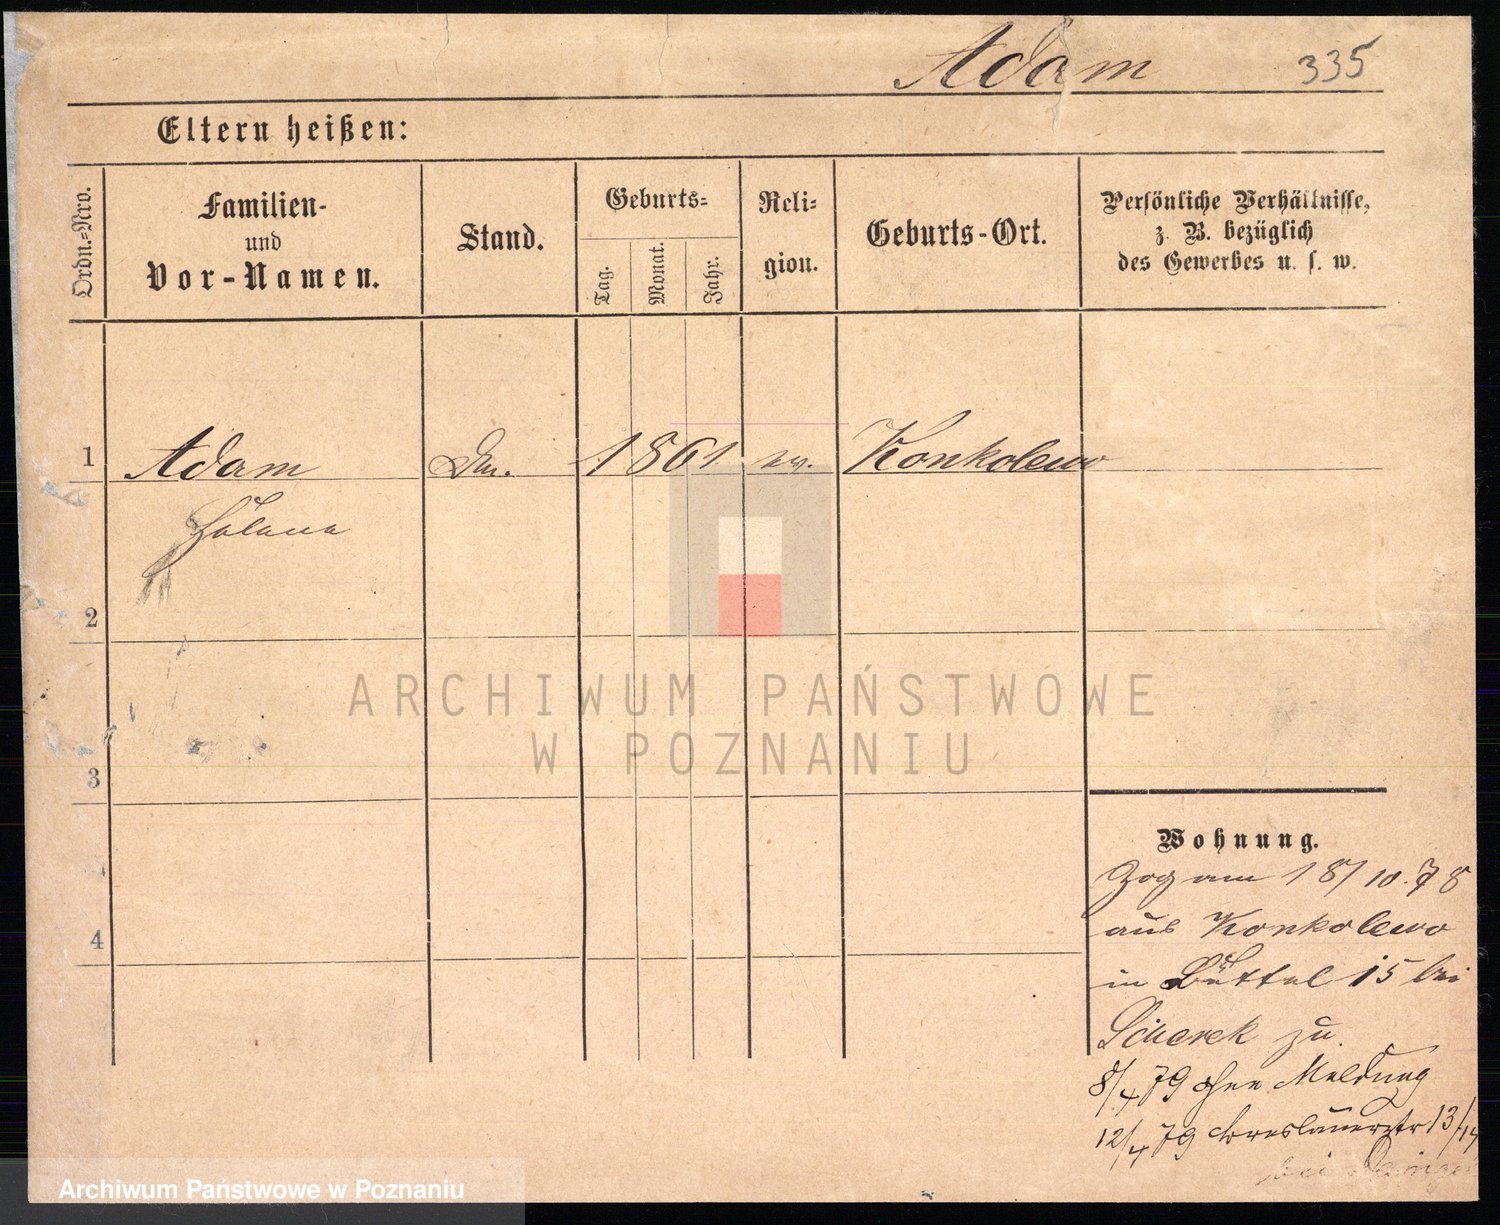 Adam 335
Eltern heißen:
Ordn.=Nro.
Familien-
und
Vor-Namen.
Stand.
Geburts=
Tag.
Monat.
Jahr.
Reli=
gion.
Geburts-Ort.
Persönliche Verhältnisse,
z. B. bezüglich
des Gewerbes u. s. w.
1 Adam 1861 ev. Konkolewo
2
3
4
ARCHIWUM PAŃSTWOWE
W POZNANIU
Wohnung.
Zog am 18/10.78
aus Konkolewo
in Büttel 15 bei
zu.
8/4 79 ohne Meldung
12/4 79 Breslauerstr 13/14
bei
Archiwum Państwowe w Poznaniu